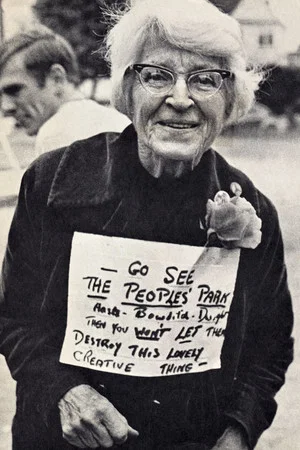 — GO SEE
THE PEOPLES' PARK
HASTE - Bowditch - Dwight
THEN YOU WON'T LET THEM
DESTROY THIS LOVELY
CREATIVE THING -